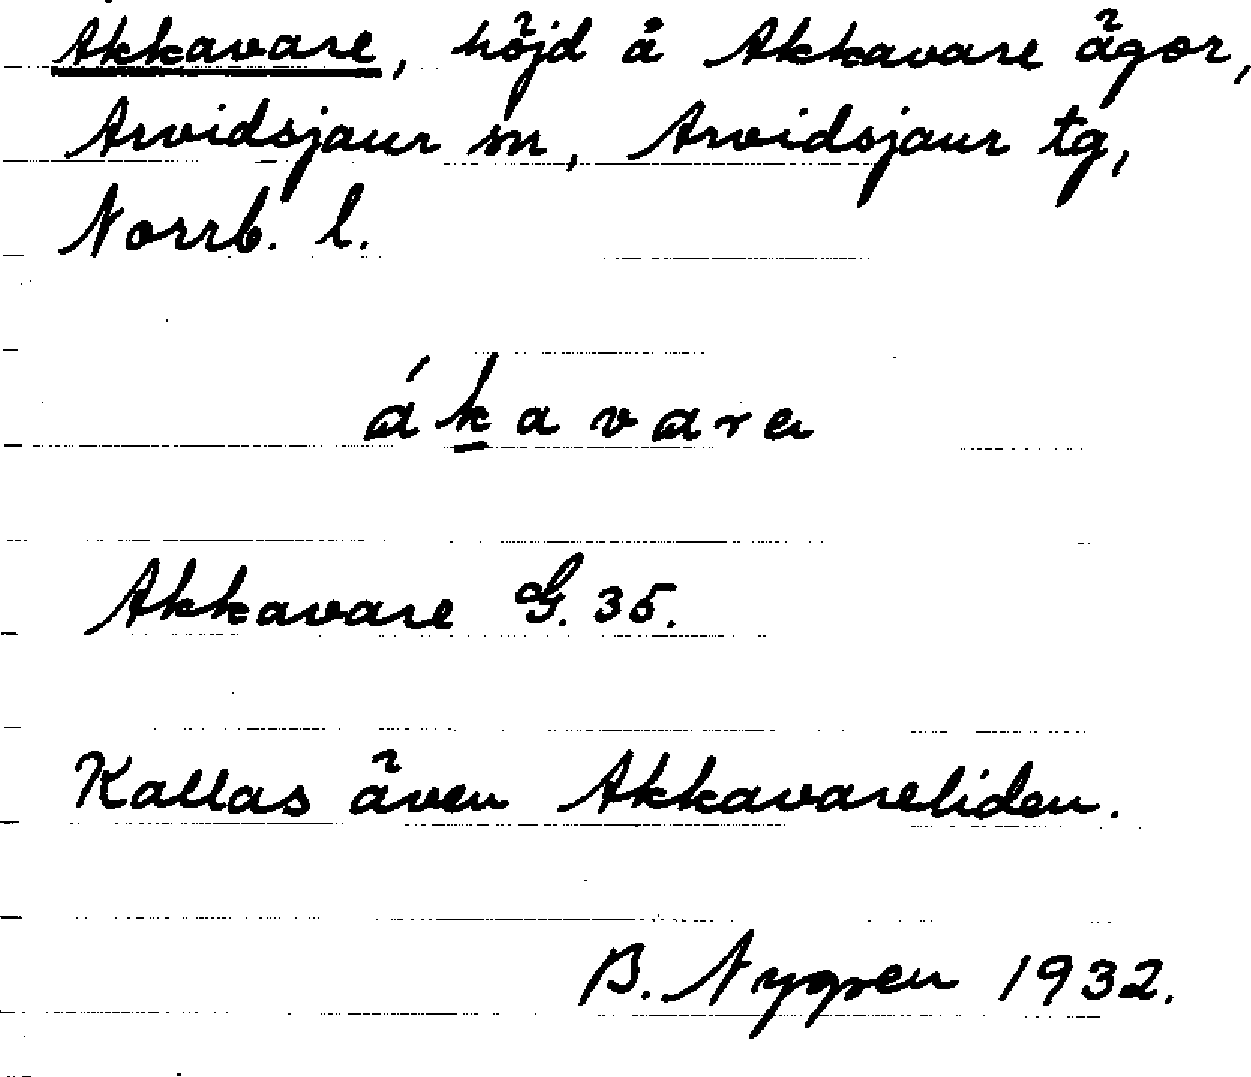 Akkavare, höjd å Akkavare ägor,
Arvidsjaur sn, Arvidsjaur tg,
Norrb. l.
ákavara
Akkavare G. 35.
Kallas även Akkavareliden.
B. Nygren 1932.